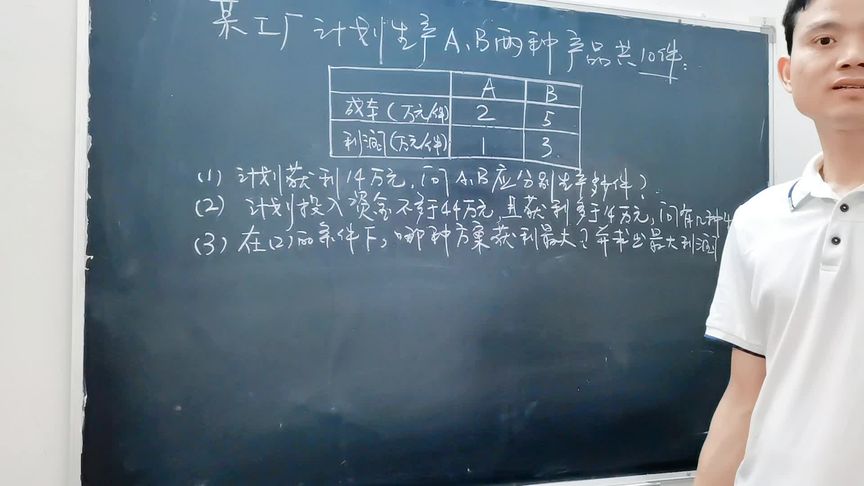 某工厂计划生产A、B两种产品共10件:
A B
成本(万元/件) 2 5
利润(万元/件) 1 3
(1) 计划获利14万元,问A、B应分别生产多少件?
(2) 计划投入资金不多于44万元,且获利多于14万元,问有几种
(3) 在(2)的条件下,哪种方案获利最大?并求出最大利润